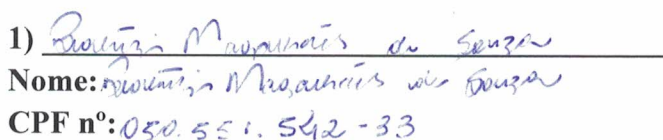 1) Magalhães de Souza
Nome: Magalhães de Souza
CPF nº: 050.551.542-33